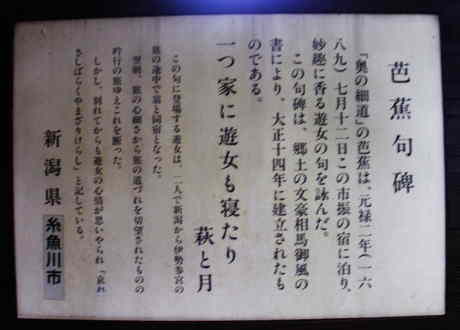 芭蕉句碑
「奥の細道」の芭蕉は、元禄二年（一六
八九）七月十二日この市振の宿に泊り、
妙趣に香る遊女の句を詠んだ。
この句碑は、郷土の文豪相馬御風の
書により、大正十四年に建立されたも
のである。
一つ家に遊女も寝たり
萩と月
この句に登場する遊女は、二人で新潟から伊勢参宮の
旅の途中で翁と同宿となった。
翌朝、旅の心細さから旅の道づれを切望されたものの
吟行の旅ゆえこれを断った。
しかし、別れてからも遊女の心情が思いやられ「哀れ
さしばらくやまざりけらし」と記している。
新潟県 糸魚川市